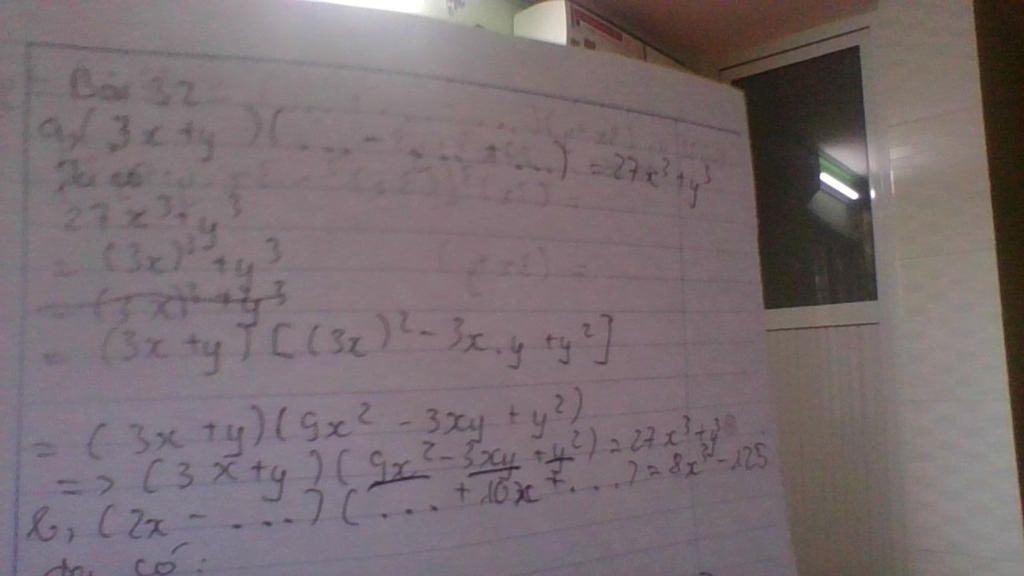 Bài 32
a, (3x+y)(... - ... + ...) = 27x³+y³
Ta có
27x³+y³
= (3x)³+y³
= (3x)³+y³
= (3x+y)[(3x)²-3x.y+y²]
= (3x+y)(9x²-3xy+y²)
=> (3x+y)(9x²-3xy+y²)=27x³+y³
b, (2x-...)(...+10x+...)=8x³-125
ta có: